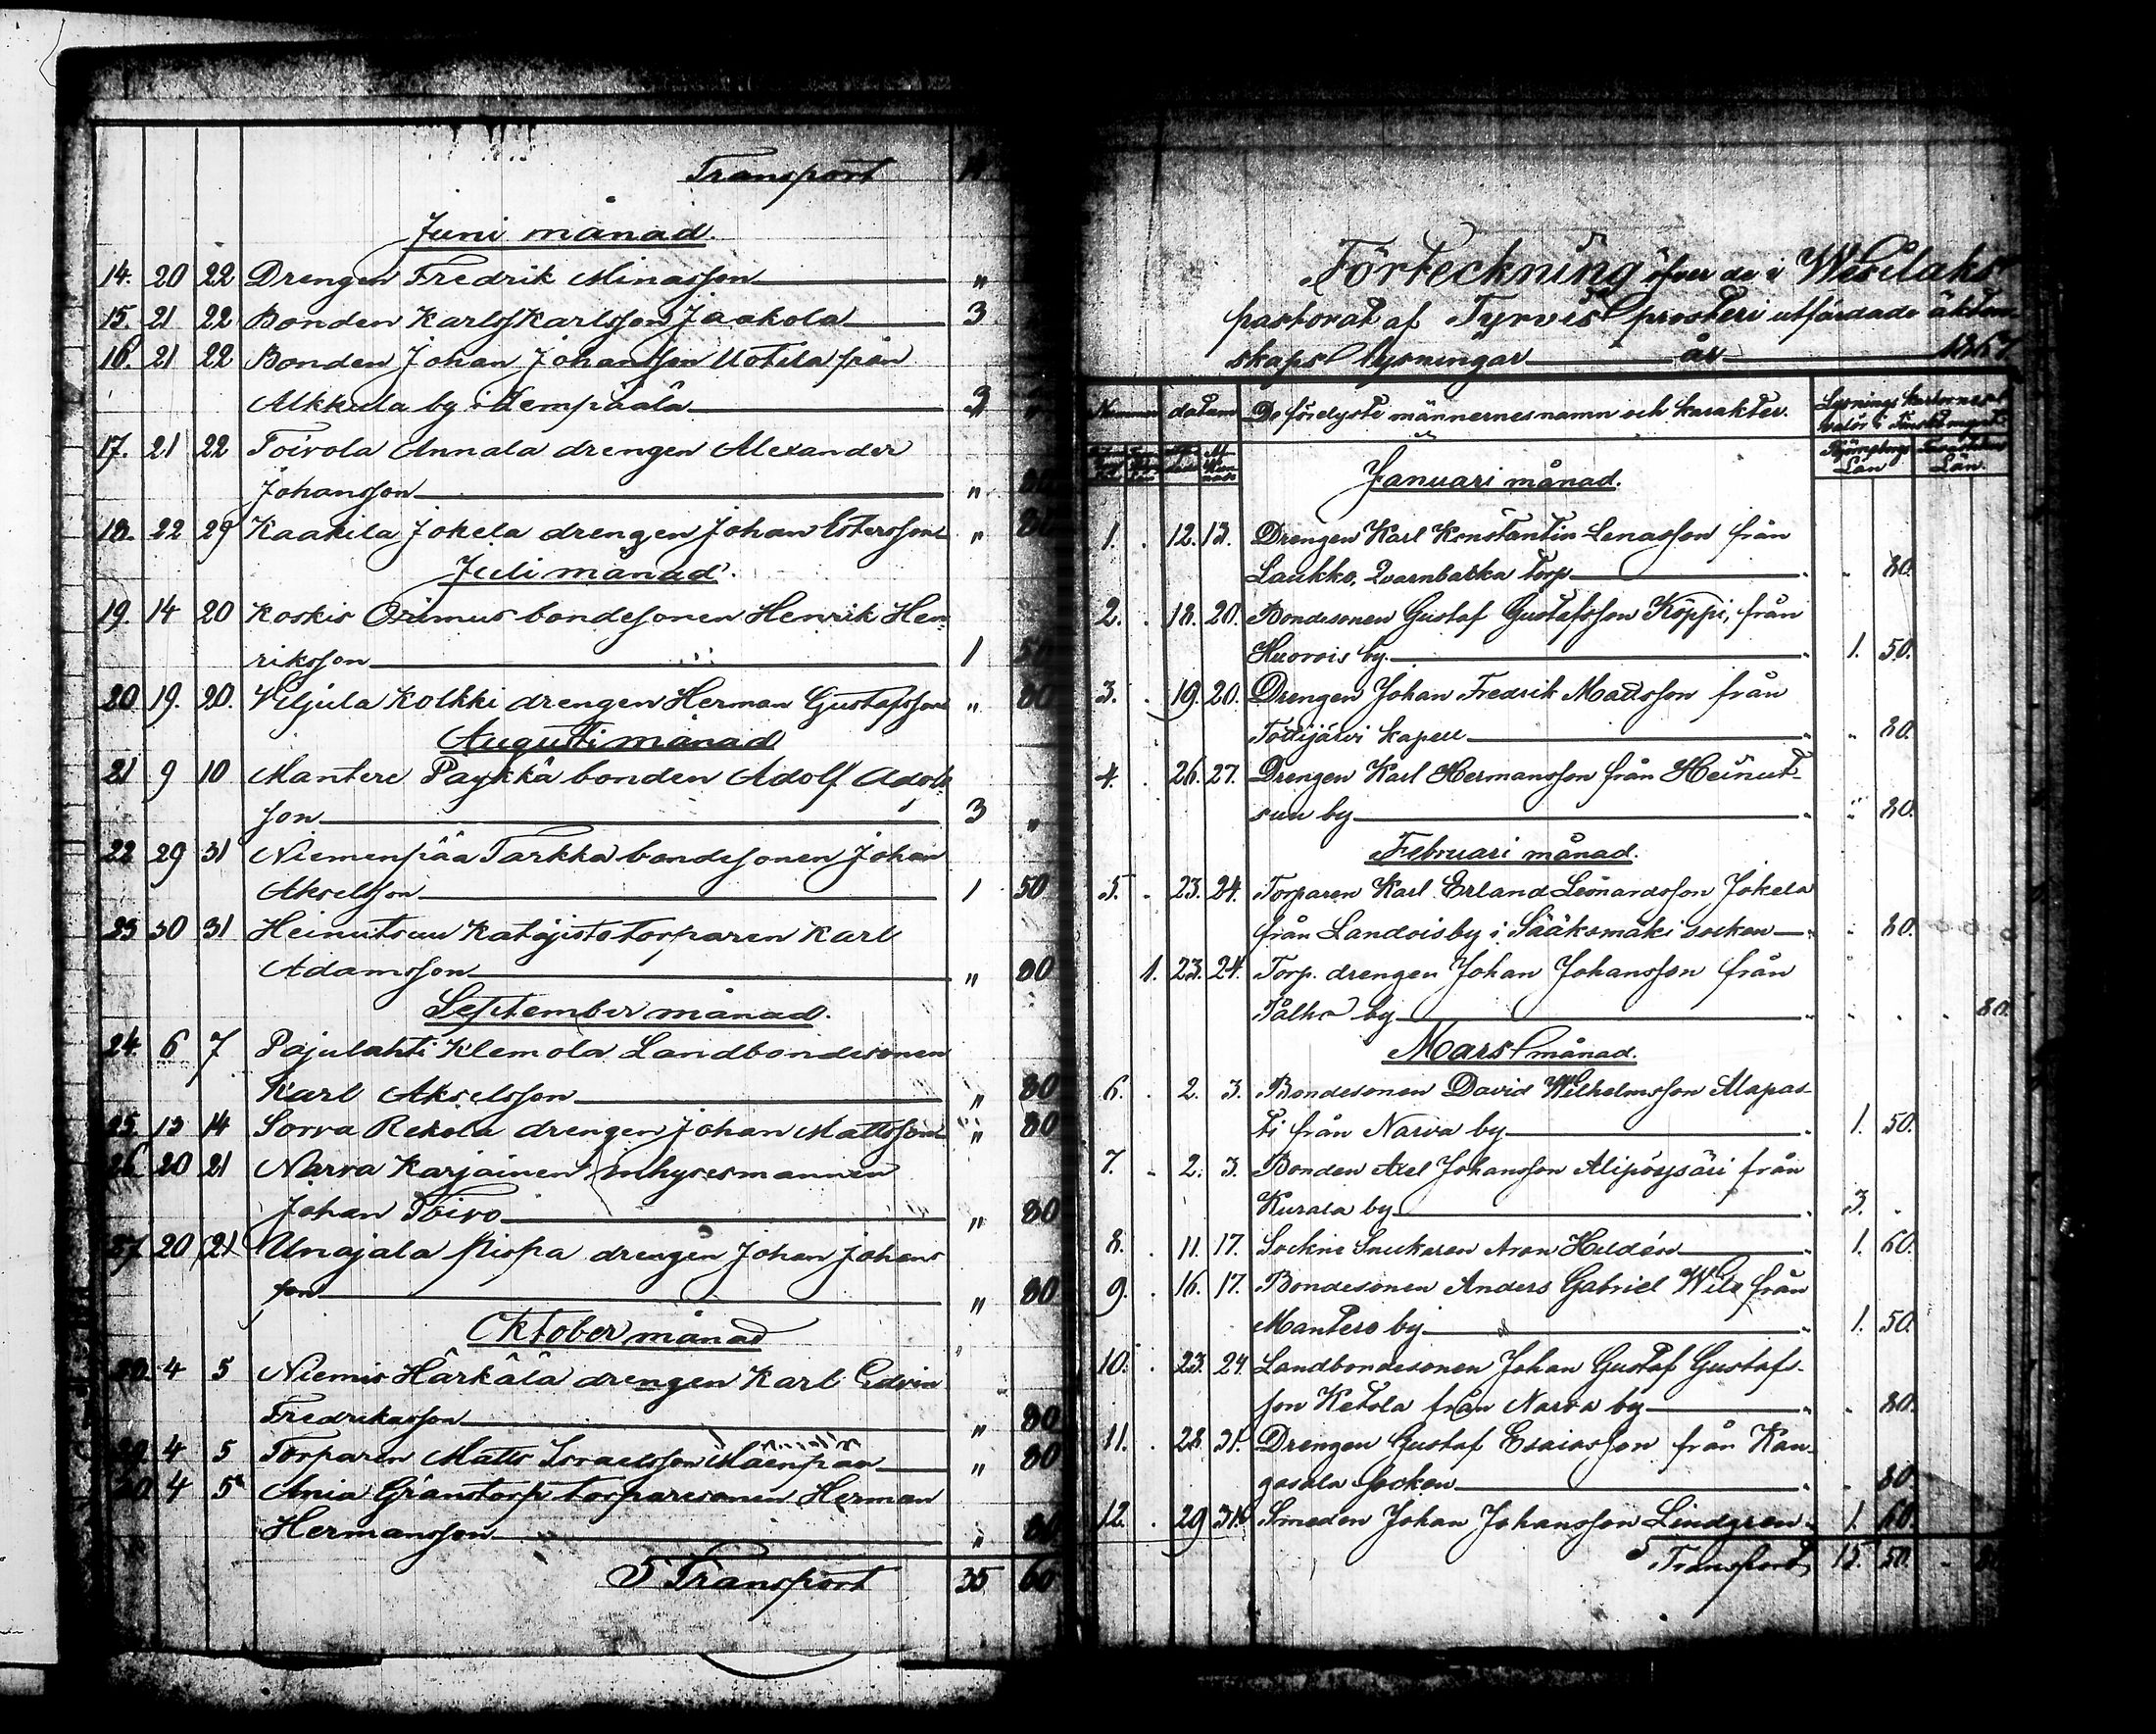 Transport
Juni månad.
14. 20 22 Drengen Fredrik Minasson "
15. 21 22 Bonden Karl Karlsson Jaakola 3
16. 21 22 Bonden Johan Johansson Uotila från
Alkkula by i Lempäälä 3 "
17. 21 22 Toivola Annala drengen Alexander
Johansson " 80
18. 22 29 Kaakila Jokela drengen Johan Estersson " 80
Juli månad.
19. 14 20 Koskis bondesonen Henrik Hen-
riksson 1 50
20 19. 20. Viljula Kolkki drengen Herman Gustafsson " 80
Augusti månad
21 9 10 Mantere Paykkä bonden Adolf Adolfs-
son 3 "
22 29 31 Niemenpää Tarkka bondesonen Johan
Akselsson 1 50
23 30 31 Heinutsuu Katajisto torparen Karl
Adamsson " 80
September månad.
24. 6 7 Pajulahti Klemola Landbondesonen
Karl Akselsson " 80
25. 13 14 Sorva Rekola drengen Johan Mattsson " 80
26 20 21 Narva Karjainen Inhysesmannen
Johan Toivo " 80
27 20 21 Unajala Rispa drengen Johan Johans
son " 80
Oktober månad
28. 4 5 Niemis Härkälä drengen Karl Edvin
Fredriksson " 80
29. 4 5 Torparen Matts Israelsson Mäenpää " 80
30 4 5 Ania Gränstorp torparesonen Herman
Hermansson " 80
Transport 35 60
Förteckning öfver de i Wesilaks
pastorat af Tyrvis prosteri utfärdade äkten-
skaps lysningar år 1867
Nummer datum De förelyste männernes namn och karakter. Lysnings kartornes
valör i Finskt mynt.
Län Län.
Januari månad.
1. 12. 13. Drengen Karl Konstantin Lenasson från
Laukko, Qvarnbacka torp " 80.
2. 18. 20. Bondesonen Gustaf Gustafsson Köppi, från
Huovois by. 1. 50.
3. 19. 20. Drengen Johan Fredrik Mattsson från
Tottijärvi kapell " 80.
4. 26. 27. Drengen Karl Hermansson från Heinut-
suu by " 80.
Februari månad.
5. 23. 24. Torparen Karl Erland Leonardsson Jokela
från Landois by i Sääksmäki socken " 80.
1. 23. 24. Torp. drengen Johan Johansson från
Palho by 80.
Mars månad.
6. 2. 3. Bondesonen David Wilhelmsson Alapas-
ti från Narva by 1. 50.
7. 2. 3. Bonden Axel Johansson Alipöysäri från
Kurala by 3.
8. 11. 17. Sockne Snickaren Aron Heldén 1. 60.
9. 16. 17. Bondesonen Anders Gabriel Wile från
Mantere by 1. 50.
10. 23. 24. Landbondesonen Johan Gustaf Gustafs-
son Ketola från Narva by 80.
11. 28. 31. Drengen Gustaf Esaiasson från Kan-
gasala Socken 80.
12. 29 31. Smeden Johan Johansson Lindgren 1. 60.
Transport 15. 50.